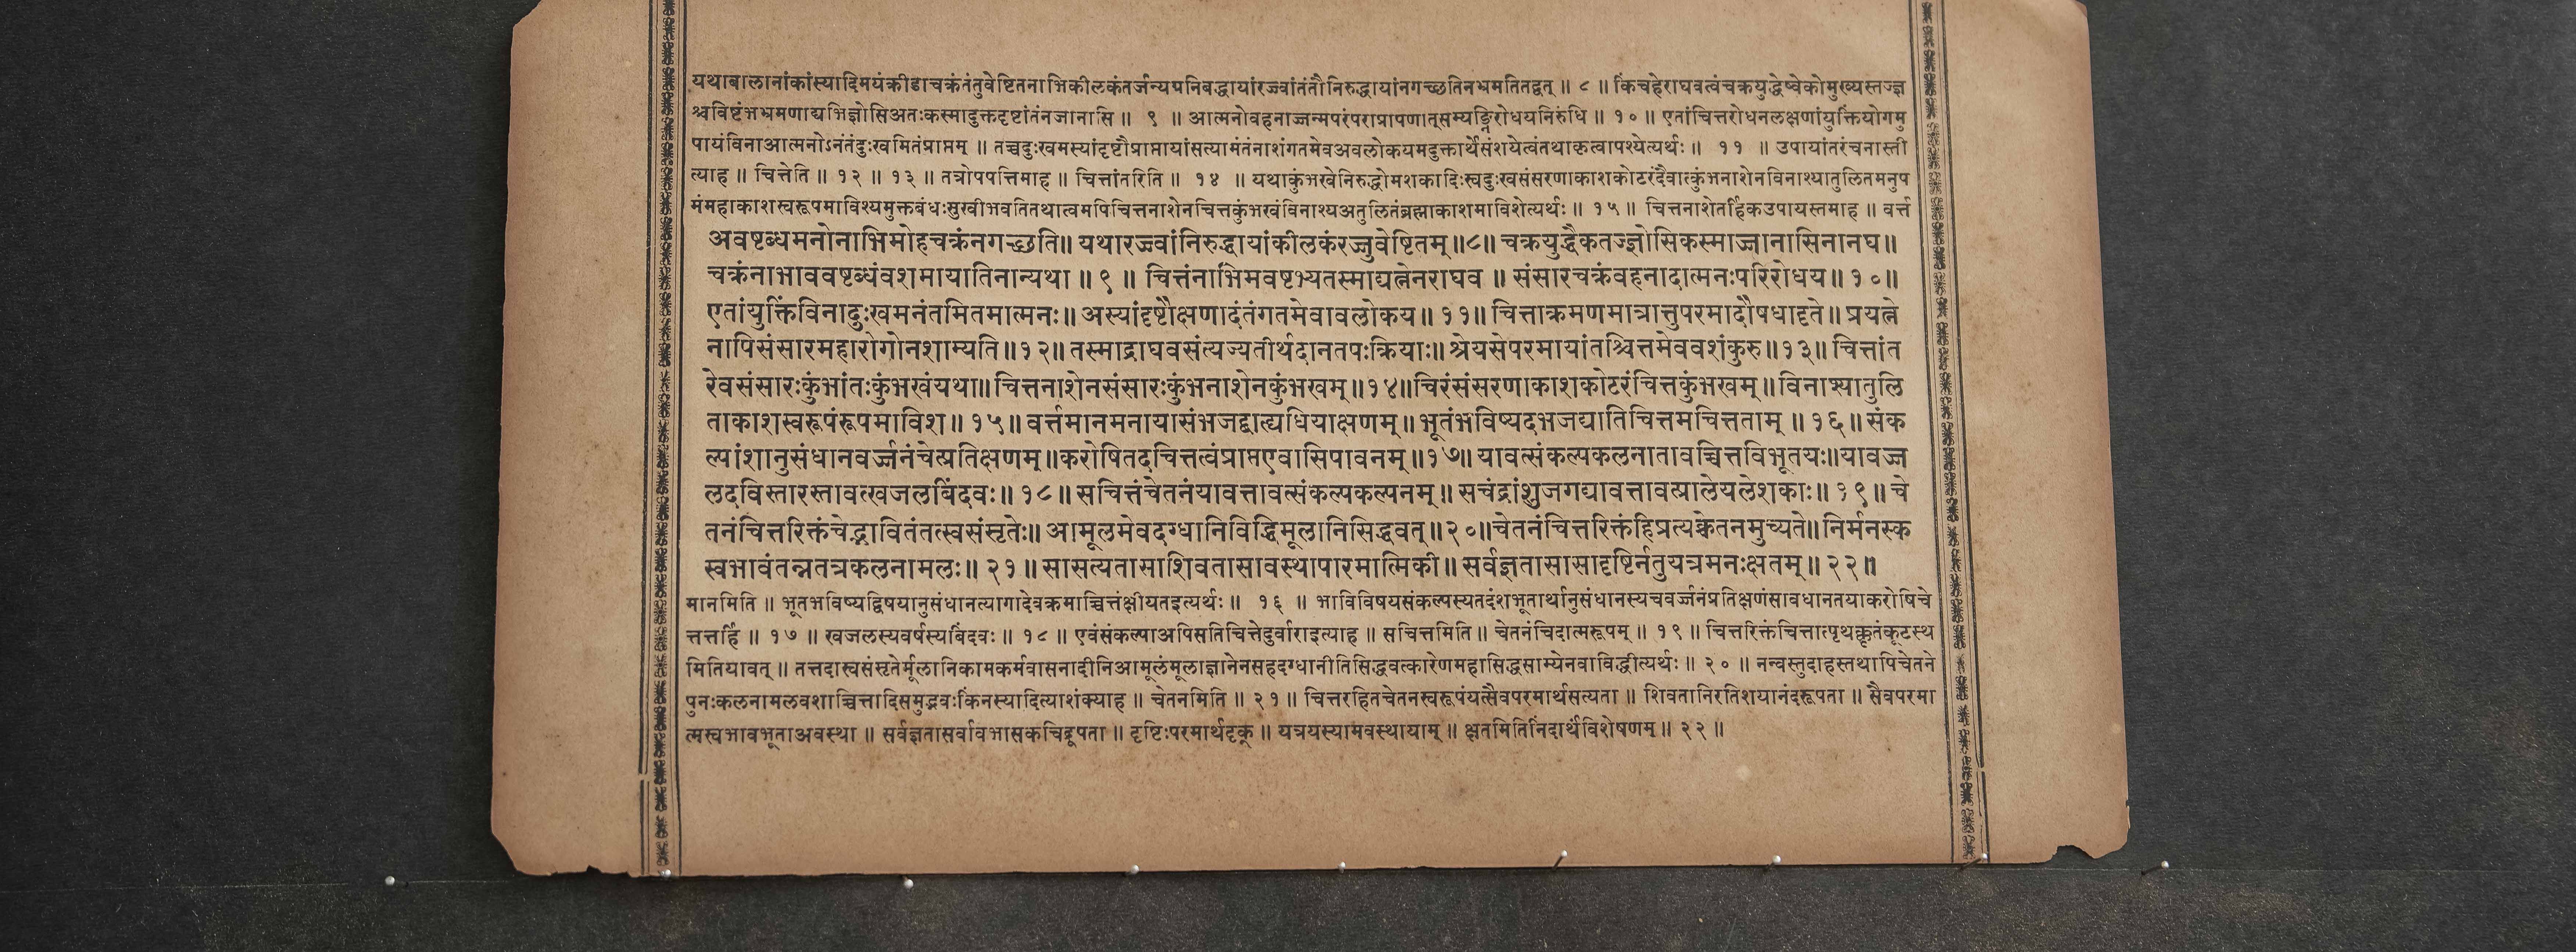 यथाबालानांकांस्यादिमयंक्रीडाचक्रंतंतुवेष्टितनाभिकीलकंतर्जन्यग्रनिबद्धायांरज्वांतंतौनिरुद्धायांनगच्छतिनभ्रमतितद्वत् ॥ ८ ॥ किंचहेराघवत्वंचक्रयुद्धेष्वेकोमुख्यस्तज्ज्ञ
श्चविष्टंभभ्रमणाद्यभिज्ञोसिअतःकस्मादुक्तदृष्टांतंनजानासि ॥ ९ ॥ आत्मनोवहनाज्जन्मपरंपराप्रापणात्सम्यङ्निरोधयनिरुंधि ॥ १० ॥ एतांचित्तरोधनलक्षणांयुक्तियोगमु
पायंविनाआत्मनोऽनंतंदुःखमितंप्राप्तम् ॥ तच्चदुःखमस्यांदृष्टौप्राप्तायांसत्यामंतंनाशंगतमेवअवलोकयमदुक्तार्थेसंशयेत्वंतथाकृत्वापश्येत्यर्थः ॥ ११ ॥ उपायांतरंचनास्ती
त्याह ॥ चित्तेति ॥ १२ ॥ १३ ॥ तत्रोपपत्तिमाह ॥ चित्तांतरिति ॥ १४ ॥ यथाकुंभखेनिरुद्धोमशकादिःस्वदुःखसंसरणाकाशकोटरंदैवात्कुंभनाशेनविनाश्यातुलितमनुप
मंमहाकाशस्वरूपमाविश्यमुक्तबंधःसुखीभवतितथात्वमपिचित्तनाशेनचित्तकुंभखंविनाश्यअतुलितंब्रह्माकाशमाविशेत्यर्थः ॥ १५ ॥ चित्तनाशेतर्हिकउपायस्तमाह ॥ वर्त्त
अवष्टब्धमनोनाभिमोहचक्रंनगच्छति॥ यथारज्ज्वांनिरुद्धायांकीलकंरज्जुवेष्टितम् ॥८॥ चक्रयुद्धैकतज्ज्ञोसिकस्माज्जानासिनानघ॥
चक्रंनाभाववष्टब्धंवशमायातिनान्यथा ॥ ९ ॥ चित्तंनाभिमवष्टभ्यतस्माद्यत्नेनराघव ॥ संसारचक्रंवहनादात्मनःपरिरोधय॥ १०॥
एतांयुक्तिंविनादुःखमनंतमितमात्मनः॥ अस्यांदृष्टौक्षणादंतंगतमेवावलोकय॥ ११॥ चित्ताक्रमणमात्रात्तुपरमादौषधादृते॥ प्रयत्ने
नापिसंसारमहारोगोनशाम्यति॥१२॥ तस्माद्राघवसंत्यज्यतीर्थदानतपःक्रियाः॥ श्रेयसेपरमायांतश्चित्तमेववशंकुरु॥१३॥ चित्तांत
रेवसंसारःकुंभांतःकुंभखंयथा॥ चित्तनाशेनसंसारःकुंभनाशेनकुंभखम्॥१४॥चिरंसंसरणाकाशकोटरंचित्तकुंभखम्॥ विनाश्यातुलि
ताकाशस्वरूपंरूपमाविश॥ १५॥ वर्त्तमानमनायासंभजद्बाह्यधियाक्षणम्॥ भूतंभविष्यदभजद्यातिचित्तमचित्तताम् ॥ १६॥ संक
ल्पांशानुसंधानवर्ज्जनंचेत्प्रतिक्षणम्॥करोषितदचित्तत्वंप्राप्तएवासिपावनम्॥१७॥ यावत्संकल्पकलनातावच्चित्तविभूतयः॥यावज्ज
लदविस्तारस्तावत्खजलबिंदवः॥ १८॥ सचित्तंचेतनंयावत्तावत्संकल्पकल्पनम्॥ सचंद्रांशुजगद्यावत्तावत्प्रालेयलेशकाः॥ १९॥ चे
तनंचित्तरिक्तंचेद्भावितंतत्स्वसंसृतेः॥ आमूलमेवदग्धानिविद्धिमूलानिसिद्धवत्॥२०॥चेतनंचित्तरिक्तंहिप्रत्यक्चेतनमुच्यते॥ निर्मनस्क
स्वभावंतन्नतत्रकलनामलः॥ २१॥ सासत्यतासाशिवतासावस्थापारमात्मिकी॥ सर्वज्ञतासासादृष्टिर्नतुयत्रमनःक्षतम्॥ २२॥
मानमिति ॥ भूतभविष्यद्विषयानुसंधानत्यागादेवक्रमाच्चित्तंक्षीयतइत्यर्थः ॥ १६ ॥ भाविविषयसंकल्पस्यतदंशभूतार्थानुसंधानस्यचवर्ज्जनंप्रतिक्षणंसावधानतयाकरोषिचे
त्तत्तर्हि ॥ १७ ॥ खजलस्यवर्षस्यबिंदवः ॥ १८ ॥ एवंसंकल्पाअपिसतिचित्तेदुर्वाराइत्याह ॥ सचित्तमिति ॥ चेतनंचिदात्मरूपम् ॥ १९ ॥ चित्तरिक्तंचित्तात्पृथक्कृतंकूटस्थ
मितियावत् ॥ तत्तदास्वसंसृतेर्मूलानिकामकर्मवासनादीनिआमूलंमूलाज्ञानेनसहदग्धानीतिसिद्धवत्कारेणमहासिद्धसाम्येनवाविद्धीत्यर्थः ॥ २० ॥ नन्वस्तुदाहस्तथापिचेतने
पुनःकलनामलवशाच्चित्तादिसमुद्भवःकिंनस्यादित्याशंक्याह ॥ चेतनमिति ॥ २१ ॥ चित्तरहितचेतनस्वरूपंयत्सैवपरमार्थसत्यता ॥ शिवतानिरतिशयानंदरूपता ॥ सैवपरमा
त्मस्वभावभूताअवस्था ॥ सर्वज्ञतासर्वावभासकचिद्रूपता ॥ दृष्टिःपरमार्थदृक् ॥ यत्रयस्यामवस्थायाम् ॥ क्षतमितिनिंदार्थंविशेषणम् ॥ २२ ॥